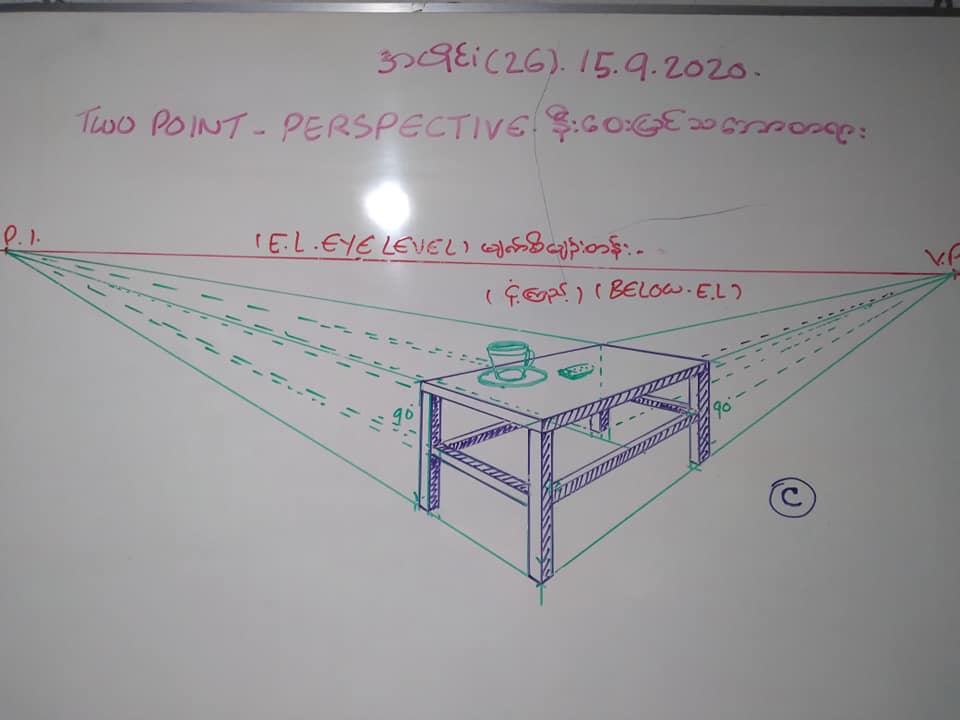 အပိုင်း(26). 15.9.2020.
TWO POINT - PERSPECTIVE နီးဝေးမြင်သဘောတရား
P.1.
(E.L. EYE LEVEL) မျက်စိမျဉ်းတန်း
V.P
(BELOW. E.L)
90
90
C